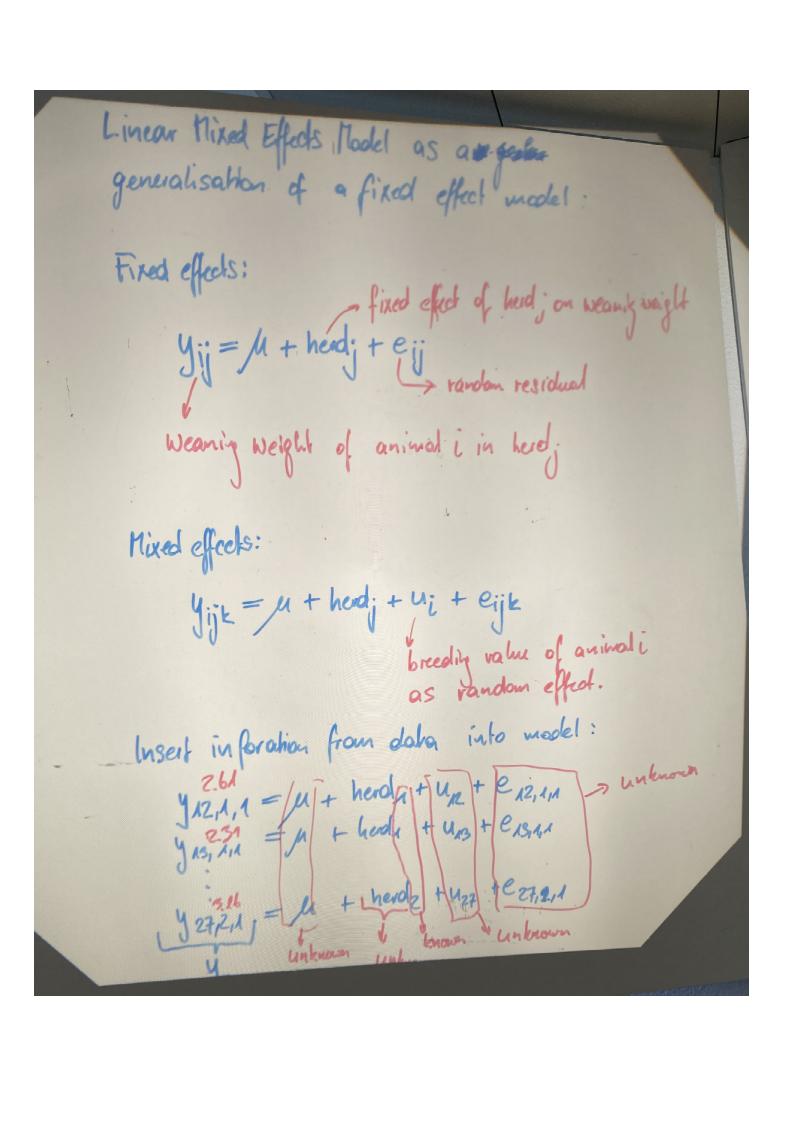 Linear Mixed Effects Model as a
generalisation of a fixed effect model :
Fixed effects:
fixed effect of herd j on weaning weight
y_ij = μ + herd_j + e_ij
random residual
weaning weight of animal i in herd j
Mixed effects:
y_ijk = μ + herd_j + u_i + e_ijk
breeding value of animal i
as random effect.
Insert inforation from data into model :
unknown
2.61
y_12,1,1 = μ + herd_1 + u_12 + e_12,1,1
2.31
y_13,1,1 = μ + herd_1 + u_13 + e_13,1,1
⋮
3.16
y_27,2,1 = μ + herd_2 + u_27 + e_27,2,1
unknown known unknown
y